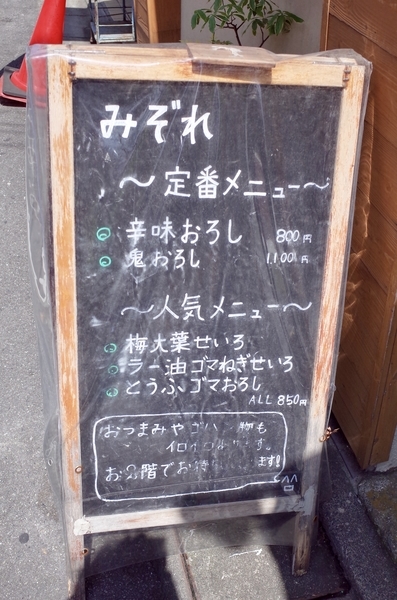 みぞれ
～定番メニュー～
辛味おろし 800円
鬼おろし 1.100円
～人気メニュー～
梅大葉せいろ
ラー油ゴマねぎせいろ
とうふゴマおろし
ALL 850円
おつまみやゴハン物も
イロイロあります。
お2階でお待ちしてます!